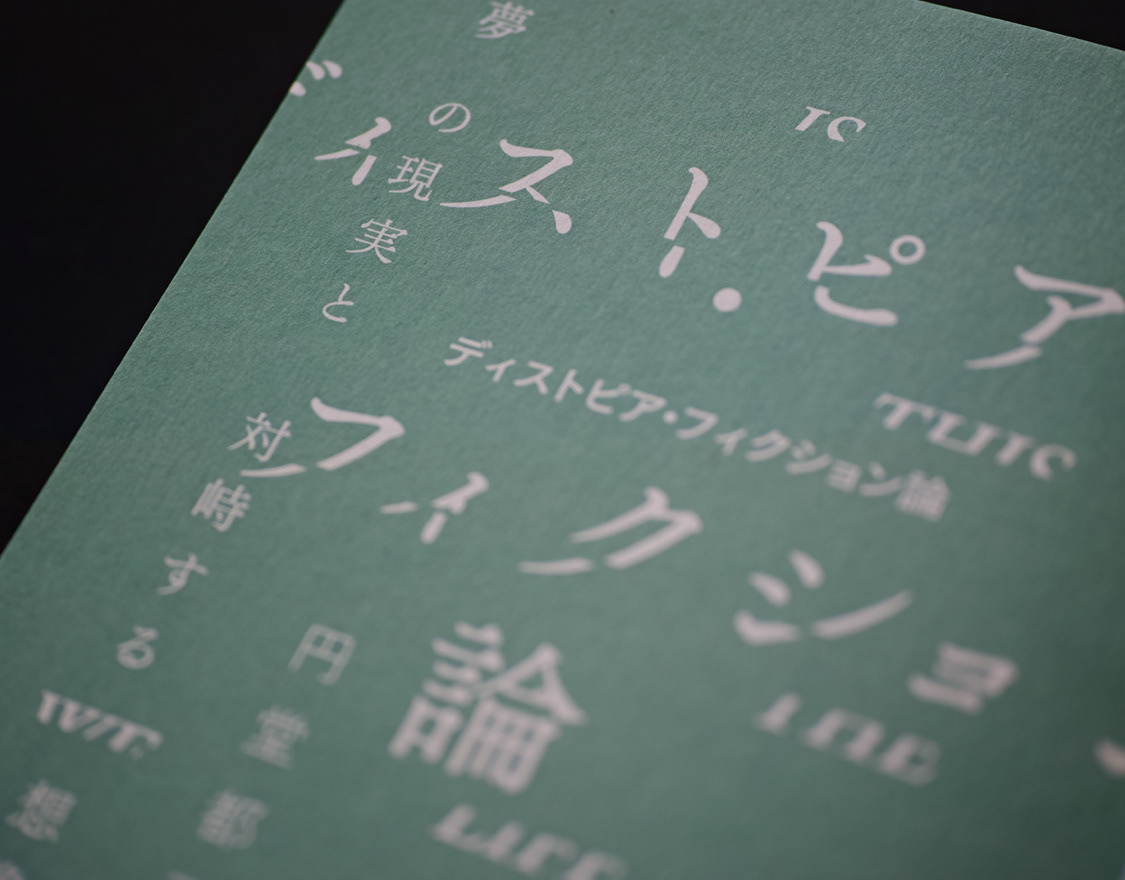 ィスト・ピア
フィクショ
論
ディストピア・フィクション論
夢の現実と対峙する
想
円堂都